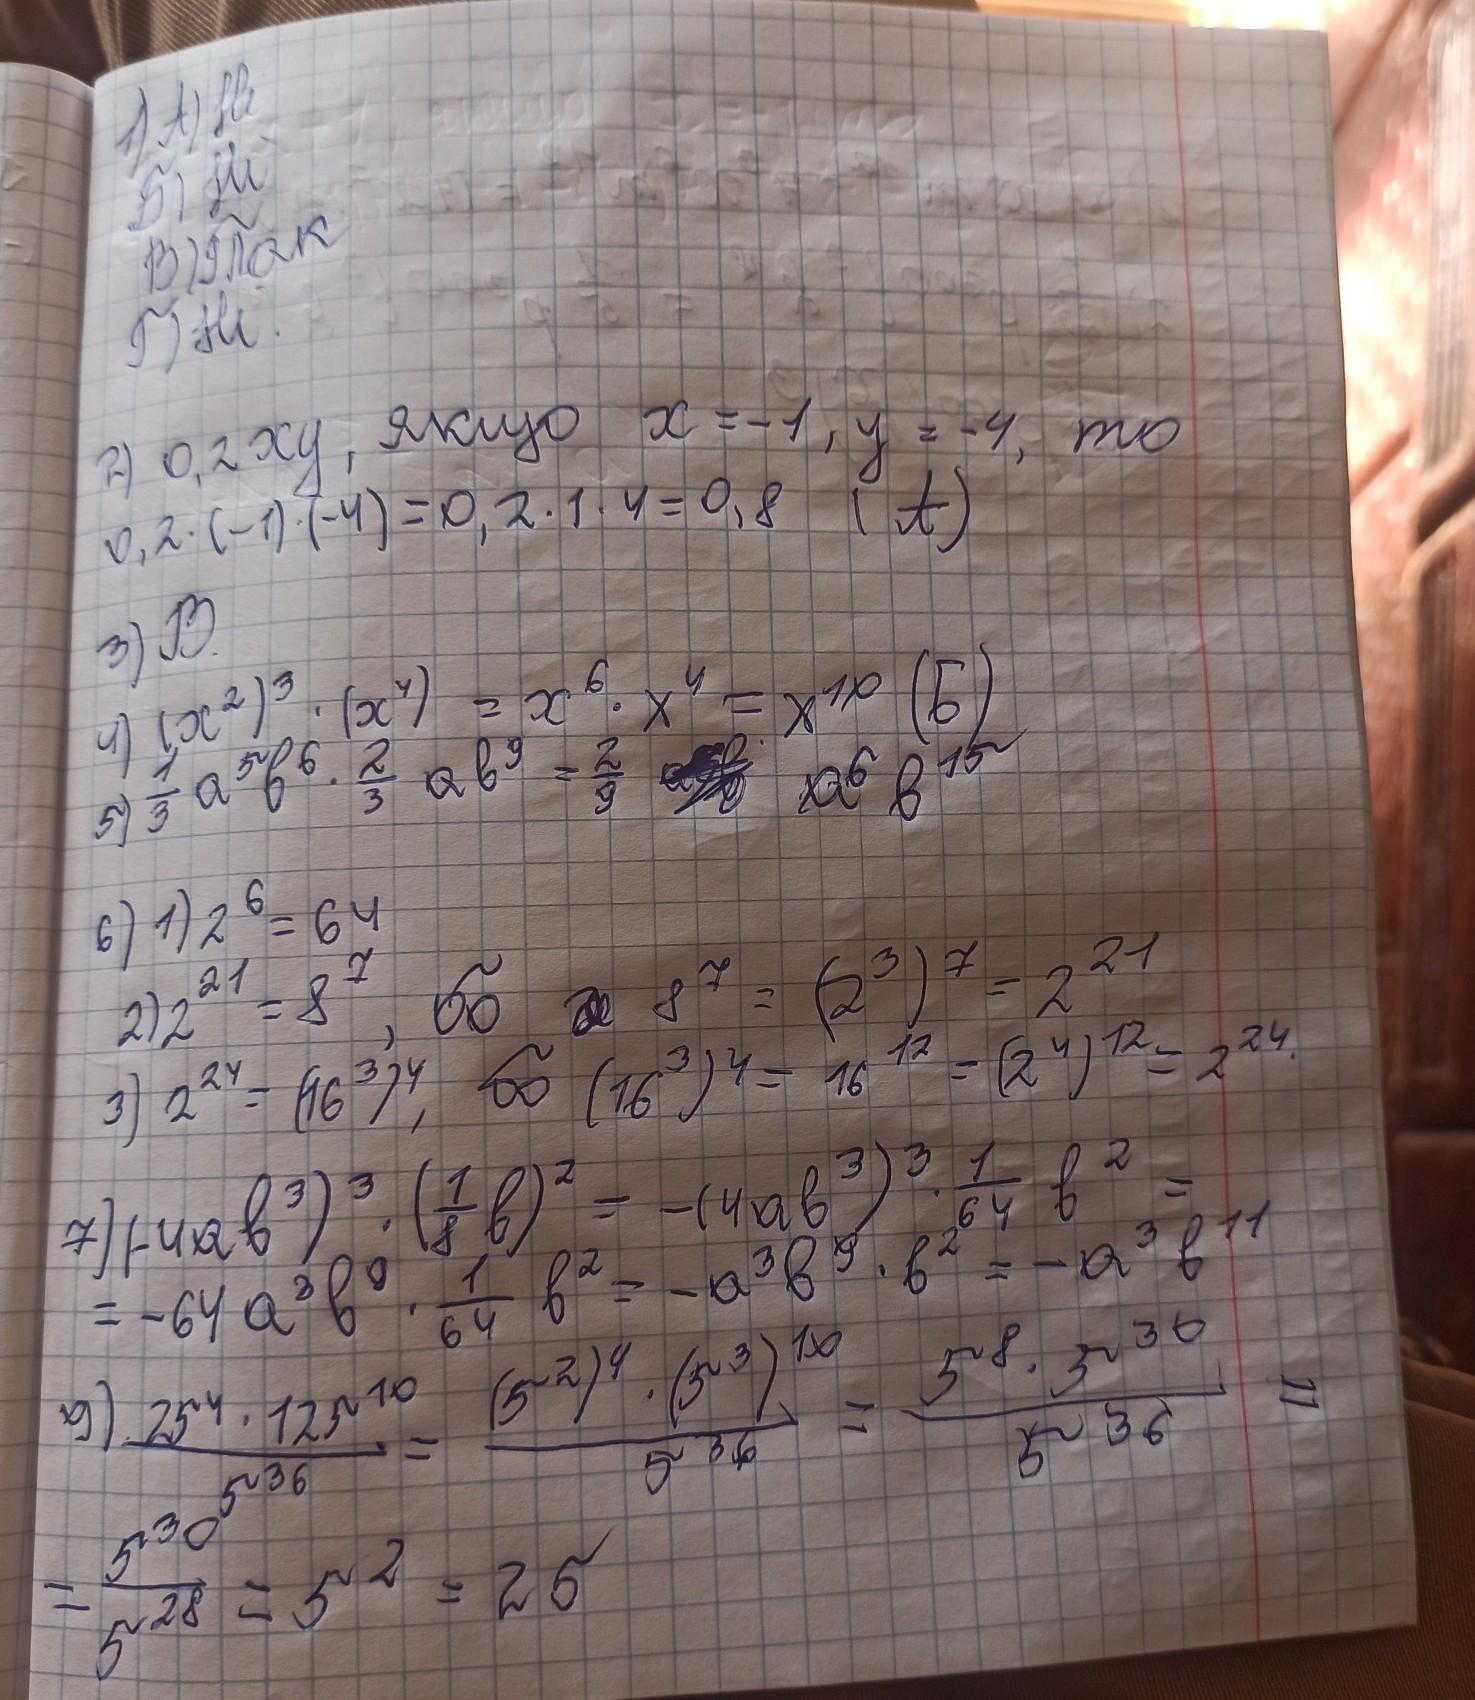 1) А) Ні
Б) Ні
В) Так
Г) Ні.
2) 0,2xy, якщо x = -1, y = -4, то
0,2·(-1)·(-4) = 0,2·1·4 = 0,8 (А)
3) В.
4) (x²)³·(x⁴) = x⁶·x⁴ = x¹⁰ (Б)
5) 1/3 a⁵b⁶ · 2/3 ab⁹ = 2/9 a⁶b¹⁵
6) 1) 2⁶ = 64
2) 2²¹ = 8⁷, бо 8⁷ = (2³)⁷ = 2²¹
3) 2²⁴ = (16³)⁴, бо (16³)⁴ = 16¹² = (2⁴)¹² = 2²⁴.
7) (-4ab³)³ · (1/8 b)² = -(4ab³)³ · 1/64 b² =
= -64a³b⁹ · 1/64 b² = -a³b⁹·b² = -a³b¹¹
9) 25⁴·125¹⁰/5³⁶ = (5²)⁴·(5³)¹⁰/5³⁶ = 5⁸·5³⁰/5³⁶ =
= 5³⁰/5²⁸ = 5² = 25